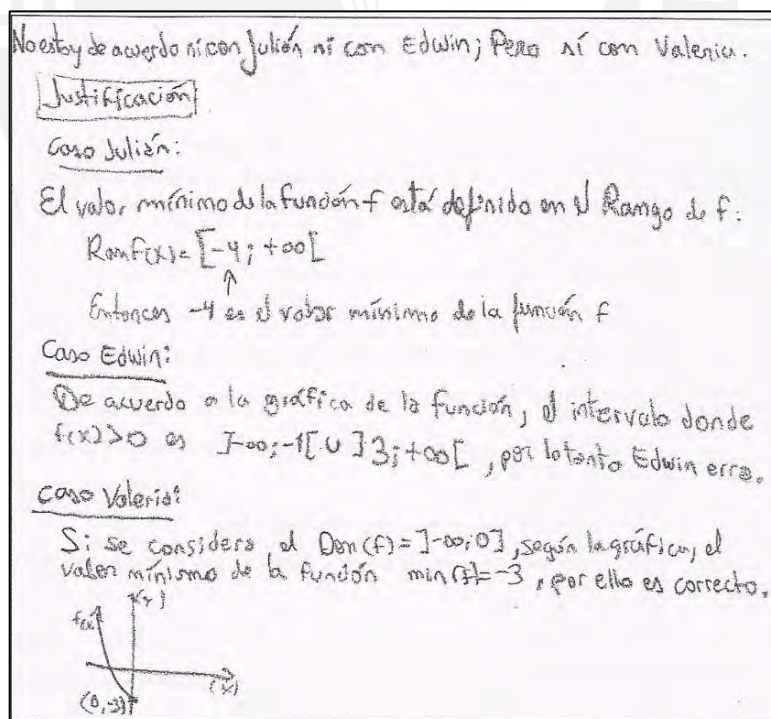 No estoy de acuerdo ni con Julián ni con Edwin; Pero sí con Valeria.
Justificación
Caso Julián:
El valor mínimo de la función f está definido en el Rango de f:
Ranf(x)= [-4; +∞[
↑
Entonces -4 es el valor mínimo de la función f
Caso Edwin:
De acuerdo a la gráfica de la función, el intervalo donde
f(x)>0 es ]-∞;-1[ ∪ ]3;+∞[ , por lo tanto Edwin erra.
Caso Valeria:
Si se considera el Dom(f)= ]-∞;0], según la gráfica, el
valor mínimo de la función min(f)=-3, por ello es correcto.
(y)
f(x)
(x)
(0,-3)